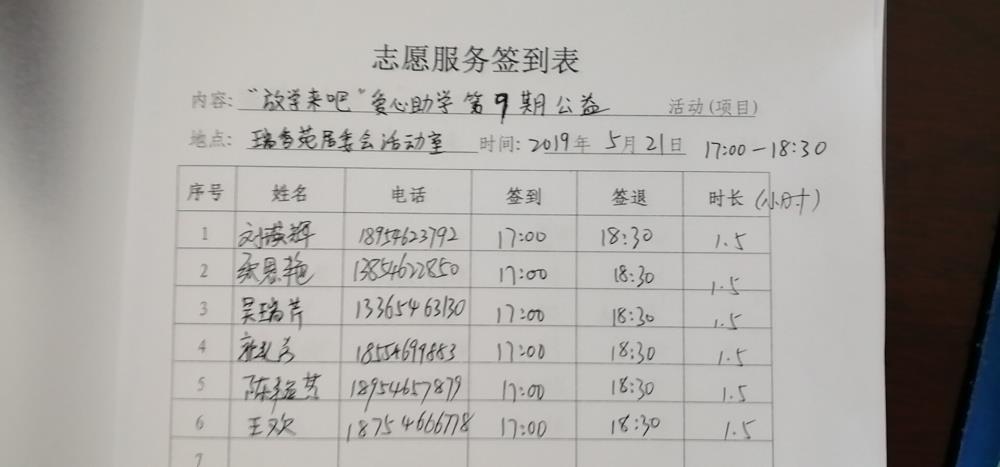 志愿服务签到表
内容: “放学来吧”爱心助学第9期公益 活动(项目)
地点: 瑞香苑居委会活动室 时间: 2019年 5月21日 17:00-18:30
序号 姓名 电话 签到 签退 时长(小时)
1 刘 辉 18954623792 17:00 18:30 1.5
2 张恩艳 13854622850 17:00 18:30 1.5
3 吴瑞芹 13365463130 17:00 18:30 1.5
4 18554699883 17:00 18:30 1.5
5 陈 英 18954657879 17:00 18:30 1.5
6 王欢 18754666778 17:00 18:30 1.5
7